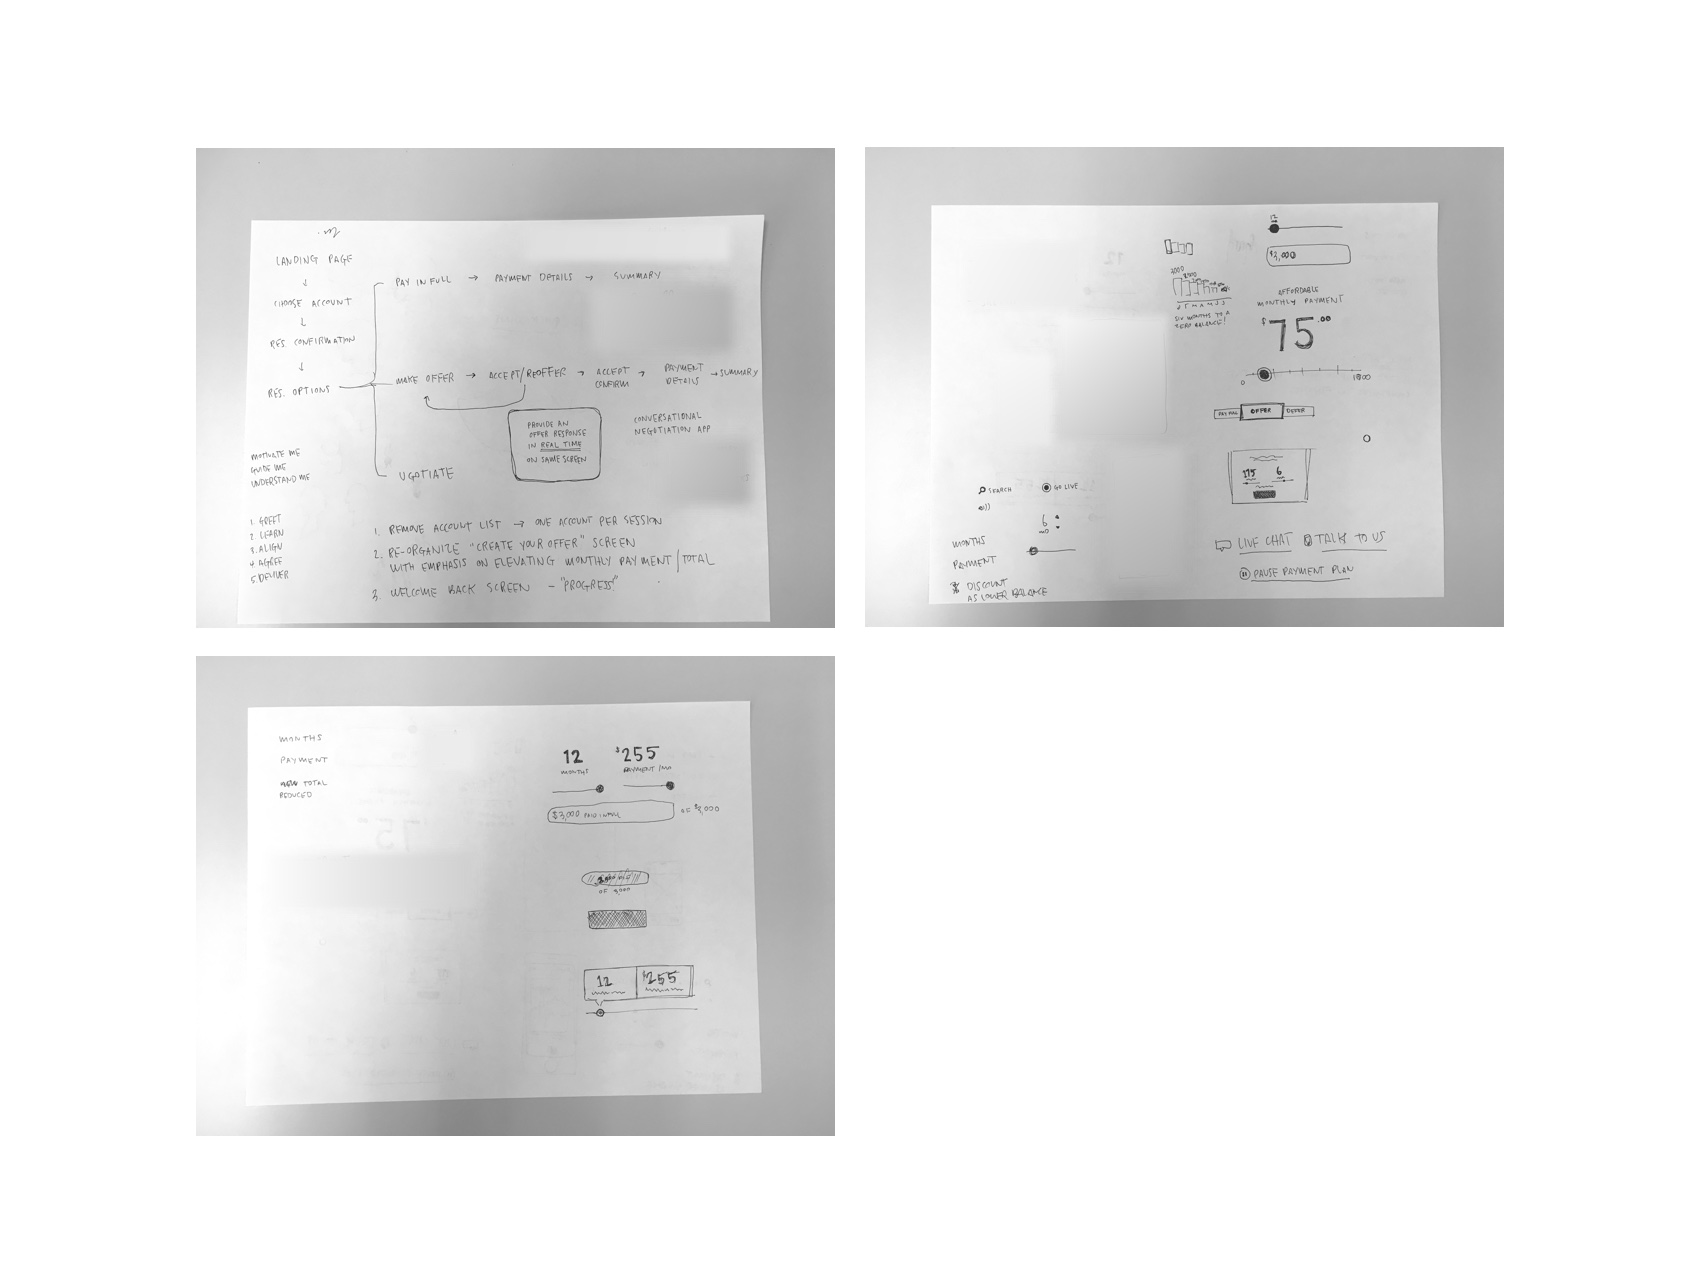 LANDING PAGE
↓
CHOOSE ACCOUNT
↓
RES. CONFIRMATION
↓
RES. OPTIONS
PAY IN FULL → PAYMENT DETAILS → SUMMARY
MAKE OFFER → ACCEPT/REOFFER → ACCEPT CONFIRM → PAYMENT DETAILS → SUMMARY
PROVIDE AN
OFFER RESPONSE
IN REAL TIME
ON SAME SCREEN
CONVERSATIONAL
NEGOTIATION APP
MOTIVATE ME
GUIDE ME
UNDERSTAND ME
1. GREET
2. LEARN
3. ALIGN
4. AGREE
5. DELIVER
1. REMOVE ACCOUNT LIST → ONE ACCOUNT PER SESSION
2. RE-ORGANIZE "CREATE YOUR OFFER" SCREEN
WITH EMPHASIS ON ELEVATING MONTHLY PAYMENT/TOTAL
3. WELCOME BACK SCREEN - "PROGRESS"
12
$3,000
3000
J F M A M J J
SIX MONTHS TO A
ZERO BALANCE!
AFFORDABLE
MONTHLY PAYMENT
$75.00
0
PAY FULL OFFER DEFER
175 6
SEARCH GO LIVE
6
MO
MONTHS
PAYMENT
$ DISCOUNT
AS LOWER BALANCE
LIVE CHAT TALK TO US
PAUSE PAYMENT PLAN
MONTHS
PAYMENT
TOTAL
REDUCED
12 $255
MONTHS PAYMENT/MO
$3,000 PAID IN FULL OF $3,000
12 $255